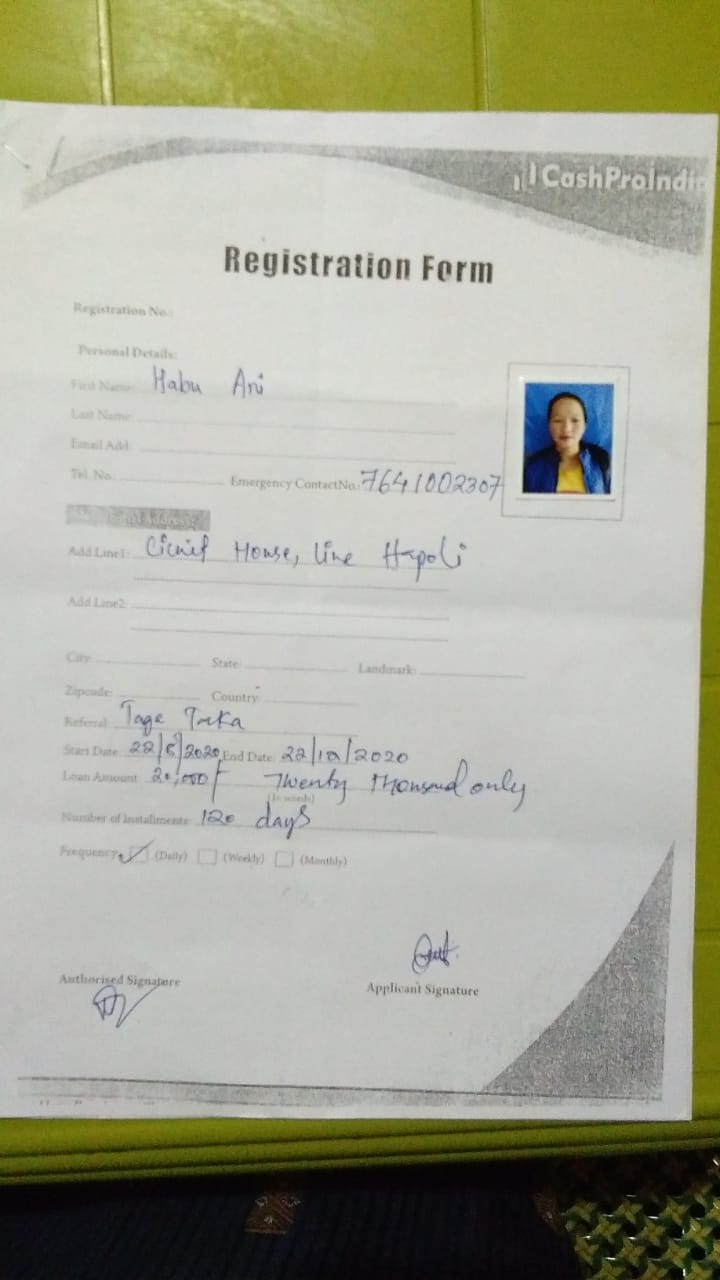 CashProIndia
Registration Form
Registration No.:
Personal Details:
First Name: Habu Ani
Last Name:
Email Add:
Tel. No. Emergency ContactNo.: 7641002307
Address:
Add Line1: House, Line Hapoli
Add Line2:
City: State: Landmark:
Zipcode: Country:
Referral: Tage
Start Date: 22/8/2020 End Date: 22/12/2020
Loan Amount: 20,000/- Twenty Thousand only
(In words)
Number of Installments: 120 days
Frequency: (Daily) (Weekly) (Monthly)
Authorised Signature
Applicant Signature